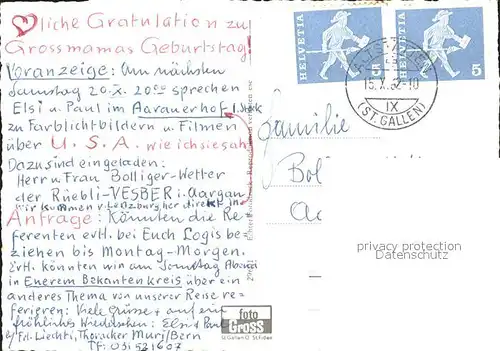 ♡liche Gratulation zu
Grossmamas Geburtstag!
Voranzeige: Am nächsten
Samstag 20.X. 20⁰⁰ sprechen
Elsi u Paul im Aarauerhof I. Stock
zu Farblichtbildern u Filmen
über U.S.A. wie ich sie sah
Dazu sind eingeladen:
Herr u Frau Bolliger-Wetter
der Rüebli-VESBER i. Aargau
Wir kommen v Lenzburg her direkt in
Anfrage: Könnten die Re
ferenten evtl. bei Euch Logis be
ziehen bis Montag-Morgen.
Evtl. könnten wir am Sonntag Abend
in Euerem Bekanntenkreis über ein
anderes Thema von unserer Reise re-
ferieren: Viele Grüsse + auf ein
fröhliches Wiedersehen: Elsi + Paul
b/ Frl. Liechti, Thoracker Muri/Bern
TF: 031 521607
HELVETIA 5
HELVETIA 5
15.X.62-10
IX
(ST. GALLEN)
Familie
Bol
foto
Gross
St. Gallen St. Fiden
privacy protection
Datenschutz